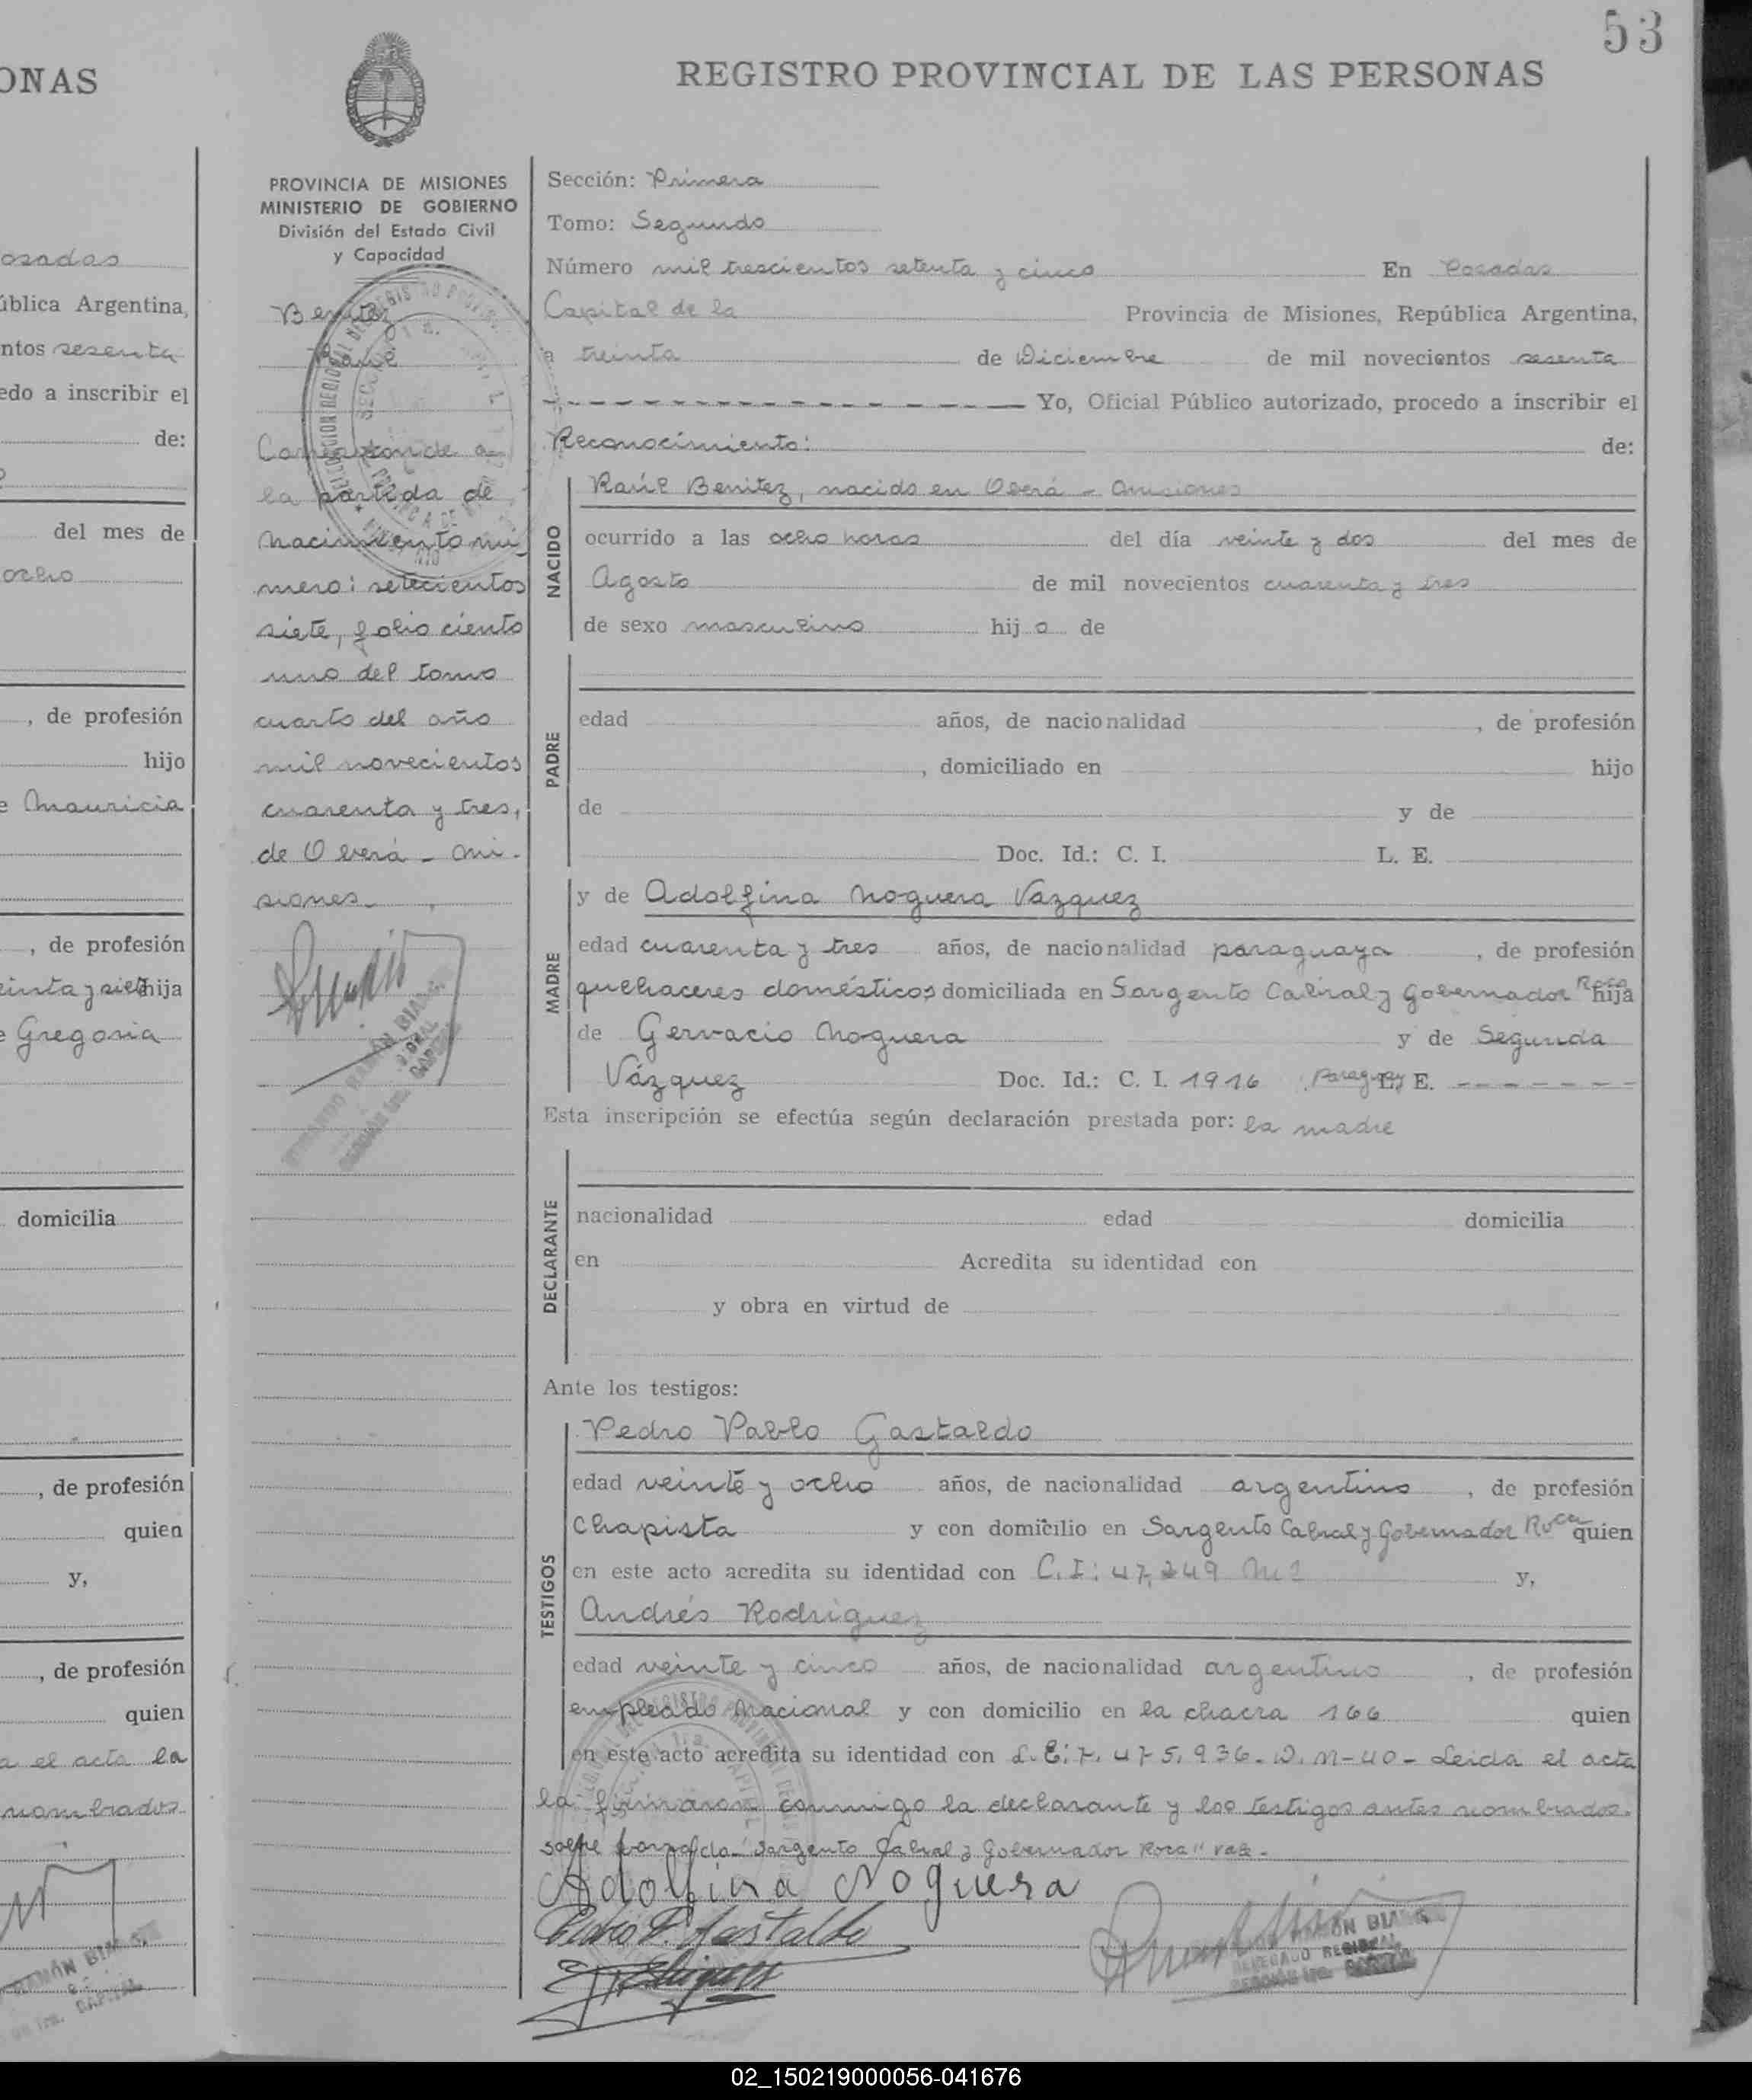 53
ONAS
REGISTRO PROVINCIAL DE LAS PERSONAS
PROVINCIA DE MISIONES
MINISTERIO DE GOBIERNO
División del Estado Civil
y Capacidad
Benitez
Raúl
Corresponde a
la partida de
nacimiento nú
mero: setecientos
siete, folio ciento
uno del tomo
cuarto del año
mil novecientos
cuarenta y tres,
de Oberá - Mi-
siones.
Sección: Primera
Tomo: Segundo
Número mil trescientos setenta y cinco En Posadas
Capital de la Provincia de Misiones, República Argentina,
a treinta de Diciembre de mil novecientos sesenta
Yo, Oficial Público autorizado, procedo a inscribir el
Reconocimiento: de:
NACIDO
Raúl Benitez, nacido en Oberá - Misiones
ocurrido a las ocho horas del día veinte y dos del mes de
Agosto de mil novecientos cuarenta y tres
de sexo masculino hijo de
PADRE
edad años, de nacionalidad , de profesión
, domiciliado en hijo
de y de
Doc. Id.: C. I. L. E.
MADRE
y de Adolfina Noguera Vazquez
edad cuarenta y tres años, de nacionalidad paraguaya , de profesión
quehaceres domésticos domiciliada en Sargento Cabral y Gobernador Roca hija
de Gervacio Noguera y de Segunda
Vázquez Doc. Id.: C. I. 1916 Paraguay L. E. - - - - - - -
Esta inscripción se efectúa según declaración prestada por: la madre
DECLARANTE
nacionalidad edad domicilia
en Acredita su identidad con
y obra en virtud de
Ante los testigos:
TESTIGOS
Pedro Pablo Gastaldo
edad veinte y ocho años, de nacionalidad argentino , de profesión
Chapista y con domicilio en Sargento Cabral y Gobernador Roca quien
en este acto acredita su identidad con C.I: 47,249 y,
Andrés Rodriguez
edad veinte y cinco años, de nacionalidad argentino , de profesión
empleado Nacional y con domicilio en la chacra 166 quien
en este acto acredita su identidad con L.E: 7.475.936. D.M-40- Leida el acta
la firmaron conmigo la declarante y los testigos antes nombrados.
sobre borrado "Sargento Cabral y Gobernador Roca" vale.
Adolfina Noguera
Pedro P. Gastaldo
RAMÓN BIAN
DELEGADO REGIONAL
SECCIÓN 1ra. CAPITAL
osadas
ública Argentina,
ntos sesenta
edo a inscribir el
de:
del mes de
ocho
, de profesión
hijo
e Mauricia
, de profesión
einta y siete hija
e Gregoria
domicilia
, de profesión
quien
y,
, de profesión
quien
a el acta la
nombrados
02_150219000056-041676